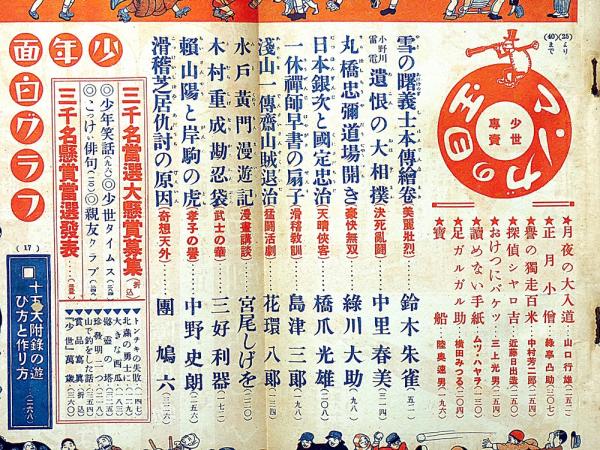 (25)より
(40)まで
マンガの目玉
少世専賣
★月夜の大入道……山口行雄
★正月小僧……綠亭凸助
★譽の獨走百米……中村芳二郎
★探偵シャロ吉……近藤日出造
★おけつにバケツ……三上光男
★讀めない手紙……ムツ・ハヤヲ
★足ガルガル助……横田みつる
★寶船……陸奥速男
雪の曙義士本傳繪卷 美麗壯烈 鈴木朱雀
小野川 雷電 遺恨の大相撲 決死亂鬪 中里春美
丸橋忠彌道場開き 豪快無双 綠川大助
日本銀次と國定忠治 天晴俠客 橋爪光雄
一休禪師早書の扇子 滑稽敎訓 島津三郎
淺山一傳齋山賊退治 猛鬪活劇 花環八郎
水戸黃門漫遊記 漫畫講談 宮尾しげを
木村重成勘忍袋 武士の華 三好利器
賴山陽と岸駒の虎 孝子の譽 中野史朗
滑稽芝居仇討の原因 奇想天外 團鳩六
三千名當選大懸賞募集(折込)
◎少年笑話
◎少世タイムス
◎こっけい俳句
◎親友クラブ
三千名懸賞當選發表
トンチキの失敗
北蟲の勇士に
大きな西瓜
慾靈の塔
珍發明
山で釣をした話
賞品寫眞(折込)
「少世」萬歲
少年面白グラフ
(17)
■十五大附錄の遊び方と作り方